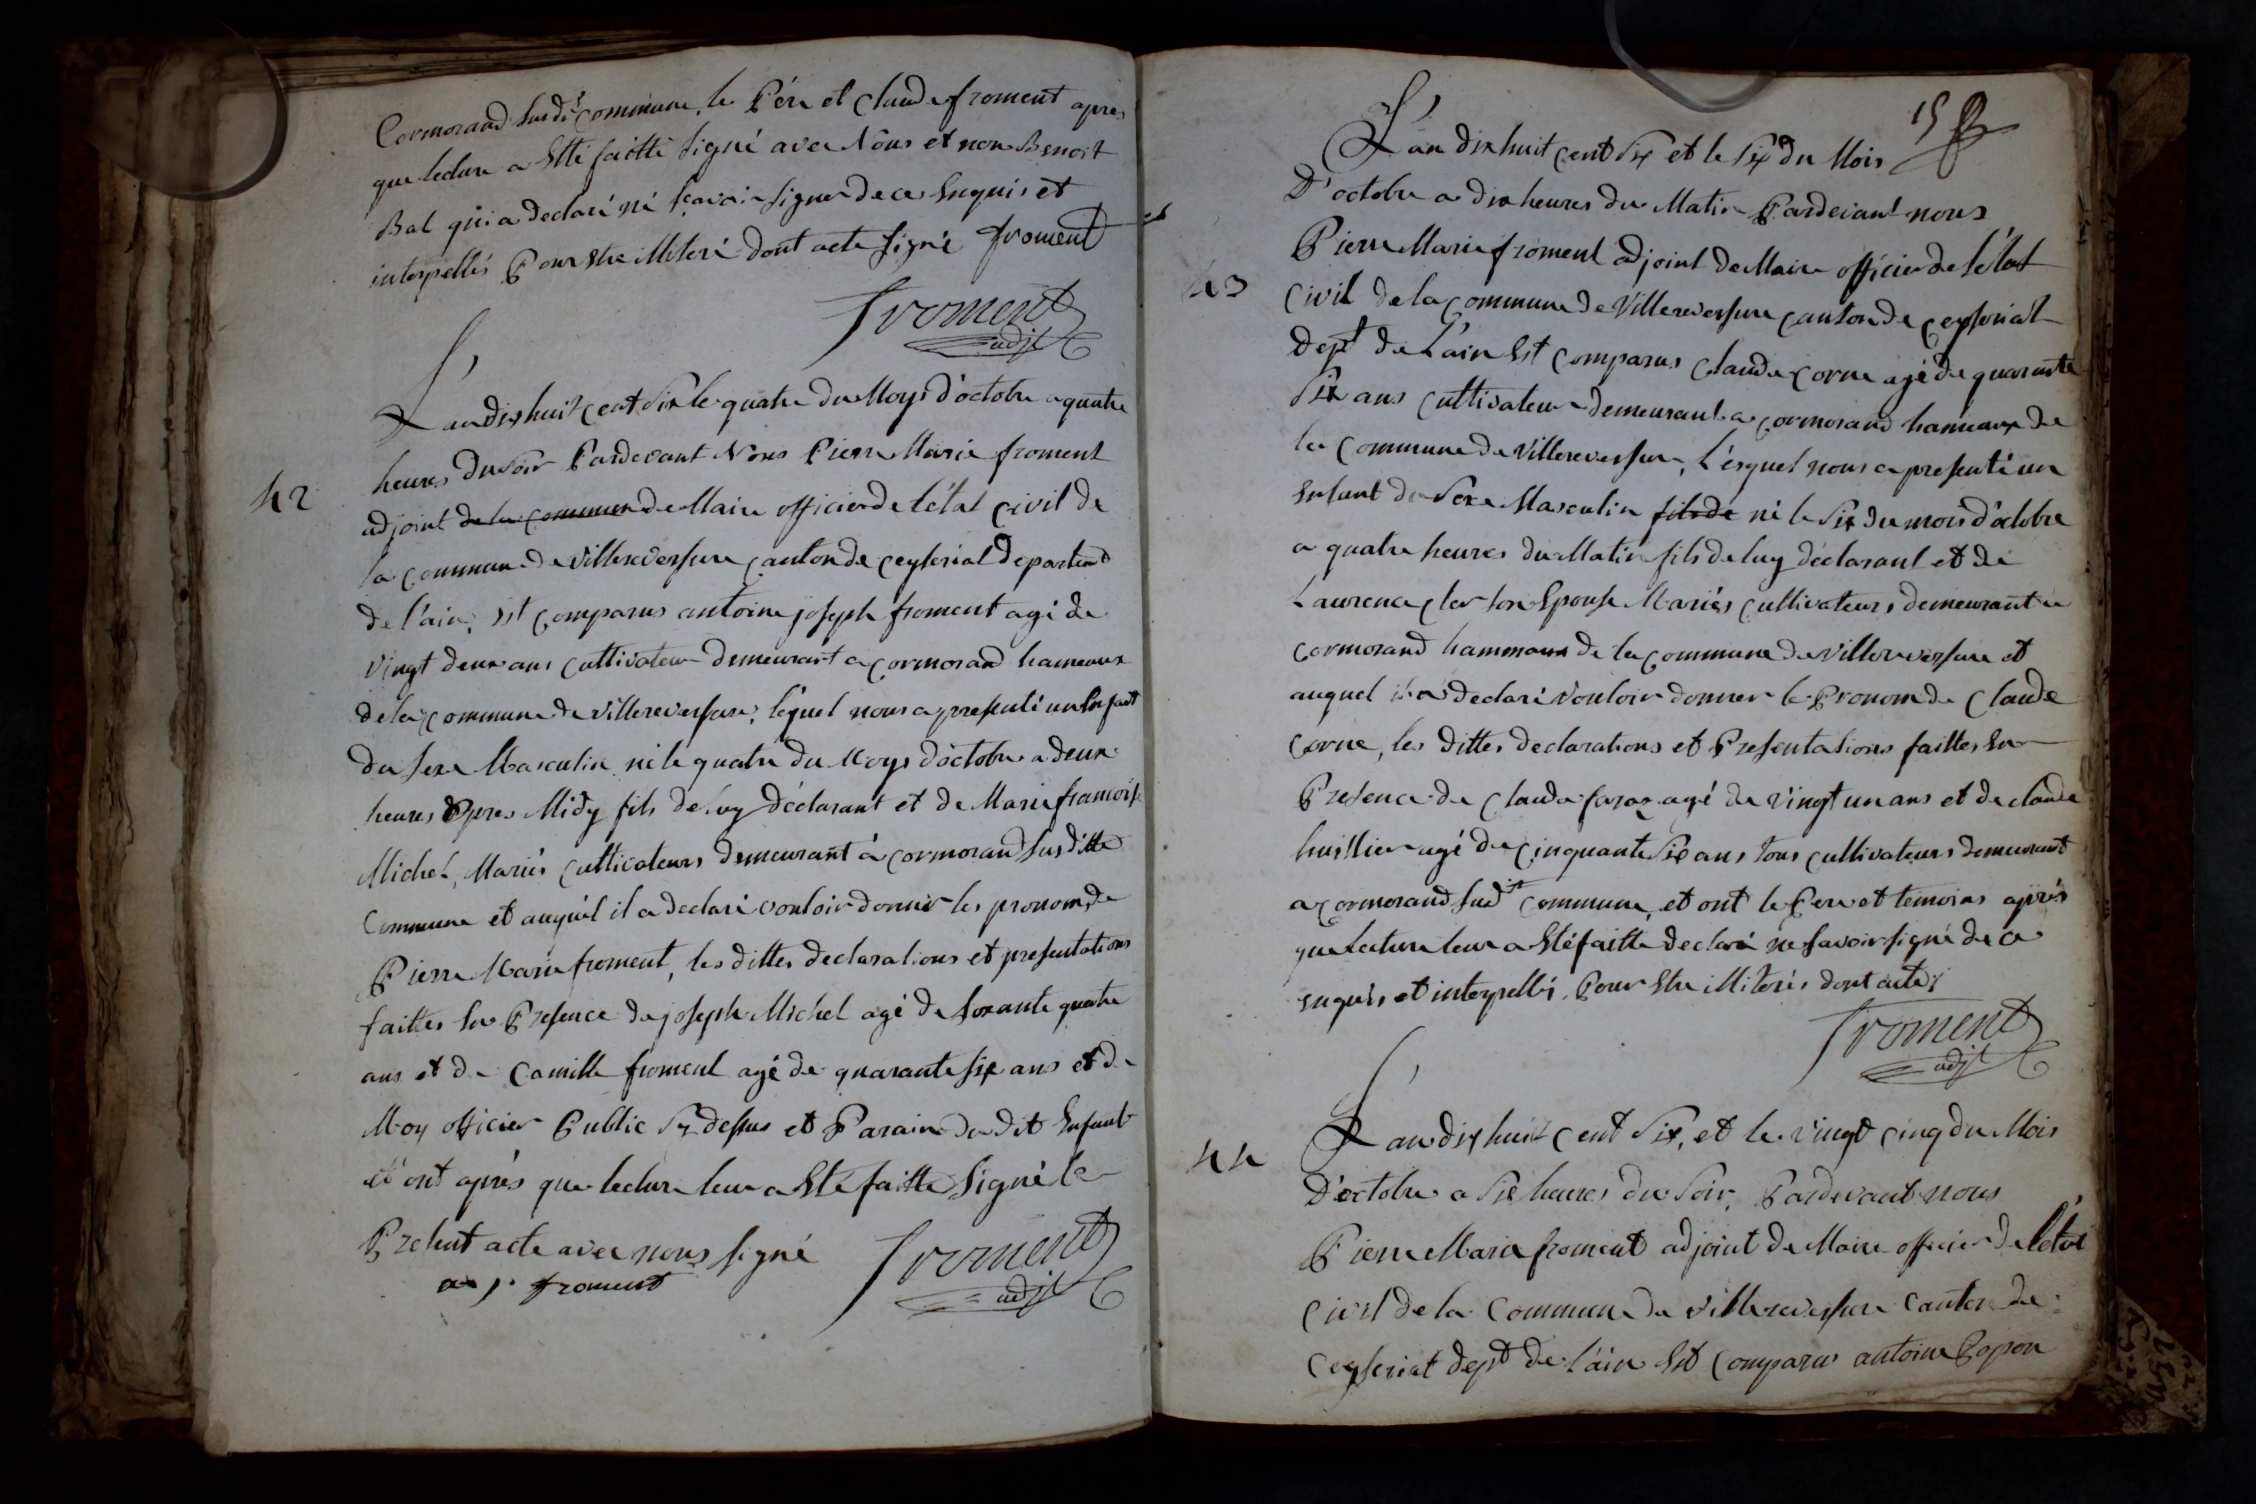 Cormorand susdte commune, le Pére et Claude froment apres
que lecture a Etté faitte signé avec Nous et non Benoit
Bal qui a declaré né sçavoir signer de ce Enquis et
interpellés Pour Etre illiteré dont acte signé froment
froment
adjt
42
L'an dix huit cent six le quatre du Moys d'octobre a quatre
heures du soir Pardevant Nous Pierre Marie froment
adjoint de la commune de Maire officier de l'état civil de
la commune de Villereversure canton de ceyseriat departemt
de l'ain, Est comparus antoine joseph froment agé de
vingt deux ans cultivateur demeurant a cormorand hameaux
de la commune de Villereversure, léquel nous a presenté un Enfant
du sexe Masculin né le quatre du Moys d'octobre a deux
heures Apres Midy fils de luy déclarant et de Marie francoise
Michel, Mariés cultivateurs demeurant à cormorand susditte
Commune et auquél il a declaré vouloir donner les pronom de
Pierre Marie froment, les dittes declarations et presentations
faittes En Presence de joseph Michel agé de soxante quatre
ans et de Camille froment agé de quarante six ans et de
Moy officier Public sy dessus et Parain du dit Enfant
et ont aprés que lecture leur a Eté faitte signé le
Present acte avec nous signé
a j. froment
froment
adjt
15
43
L'an dix huit cent six et le six du Mois
D'octobre a dix heures du Matin Pardevant nous
Pierre Marie froment adjoint de Maire officier de l'état
Civil de la commune de Villereversure canton de ceyseriat
Dept de L'ain Est comparus Claude Corne agé de quarante
six ans cultivateur demeurant a cormorand hameaux de
la Commune de Villereversure, l'ésquel nous a presenté un
Enfant du sexe Masculin fils de né le six du mois d'octobre
a quatre heures du Matin fils de luy déclarant et de
Laurence Cler son Epouse Mariés cultivateurs demeurant a
cormorand hammaux de la commune de Villereversure et
auquel il a declaré vouloir donner le Pronom de Claude
Corne, les dittes declarations et Presentations faittes En
Presence de Claude faraz agé de vingt un ans et de claude
huillier agé de cinquante six ans tous cultivateurs demeurant
a cormorand susdte commune, et ont le Pere et temoins aprés
que Lecture leur a Eté faitte declaré ne savoir signé de ce
enquis et interpellés. Pour Etre illiterés dont acte
froment
adjt
44
L'an dix huit cent six, et le vingt cinq du Mois
D'octobre a six heures du soir, Pardevant nous
Pierre Marie froment adjoint de Maire officier de l'état
Civil de la Commune de Villereversure canton de
Ceyseriat dept de l'ain Est Comparus antoine Popon